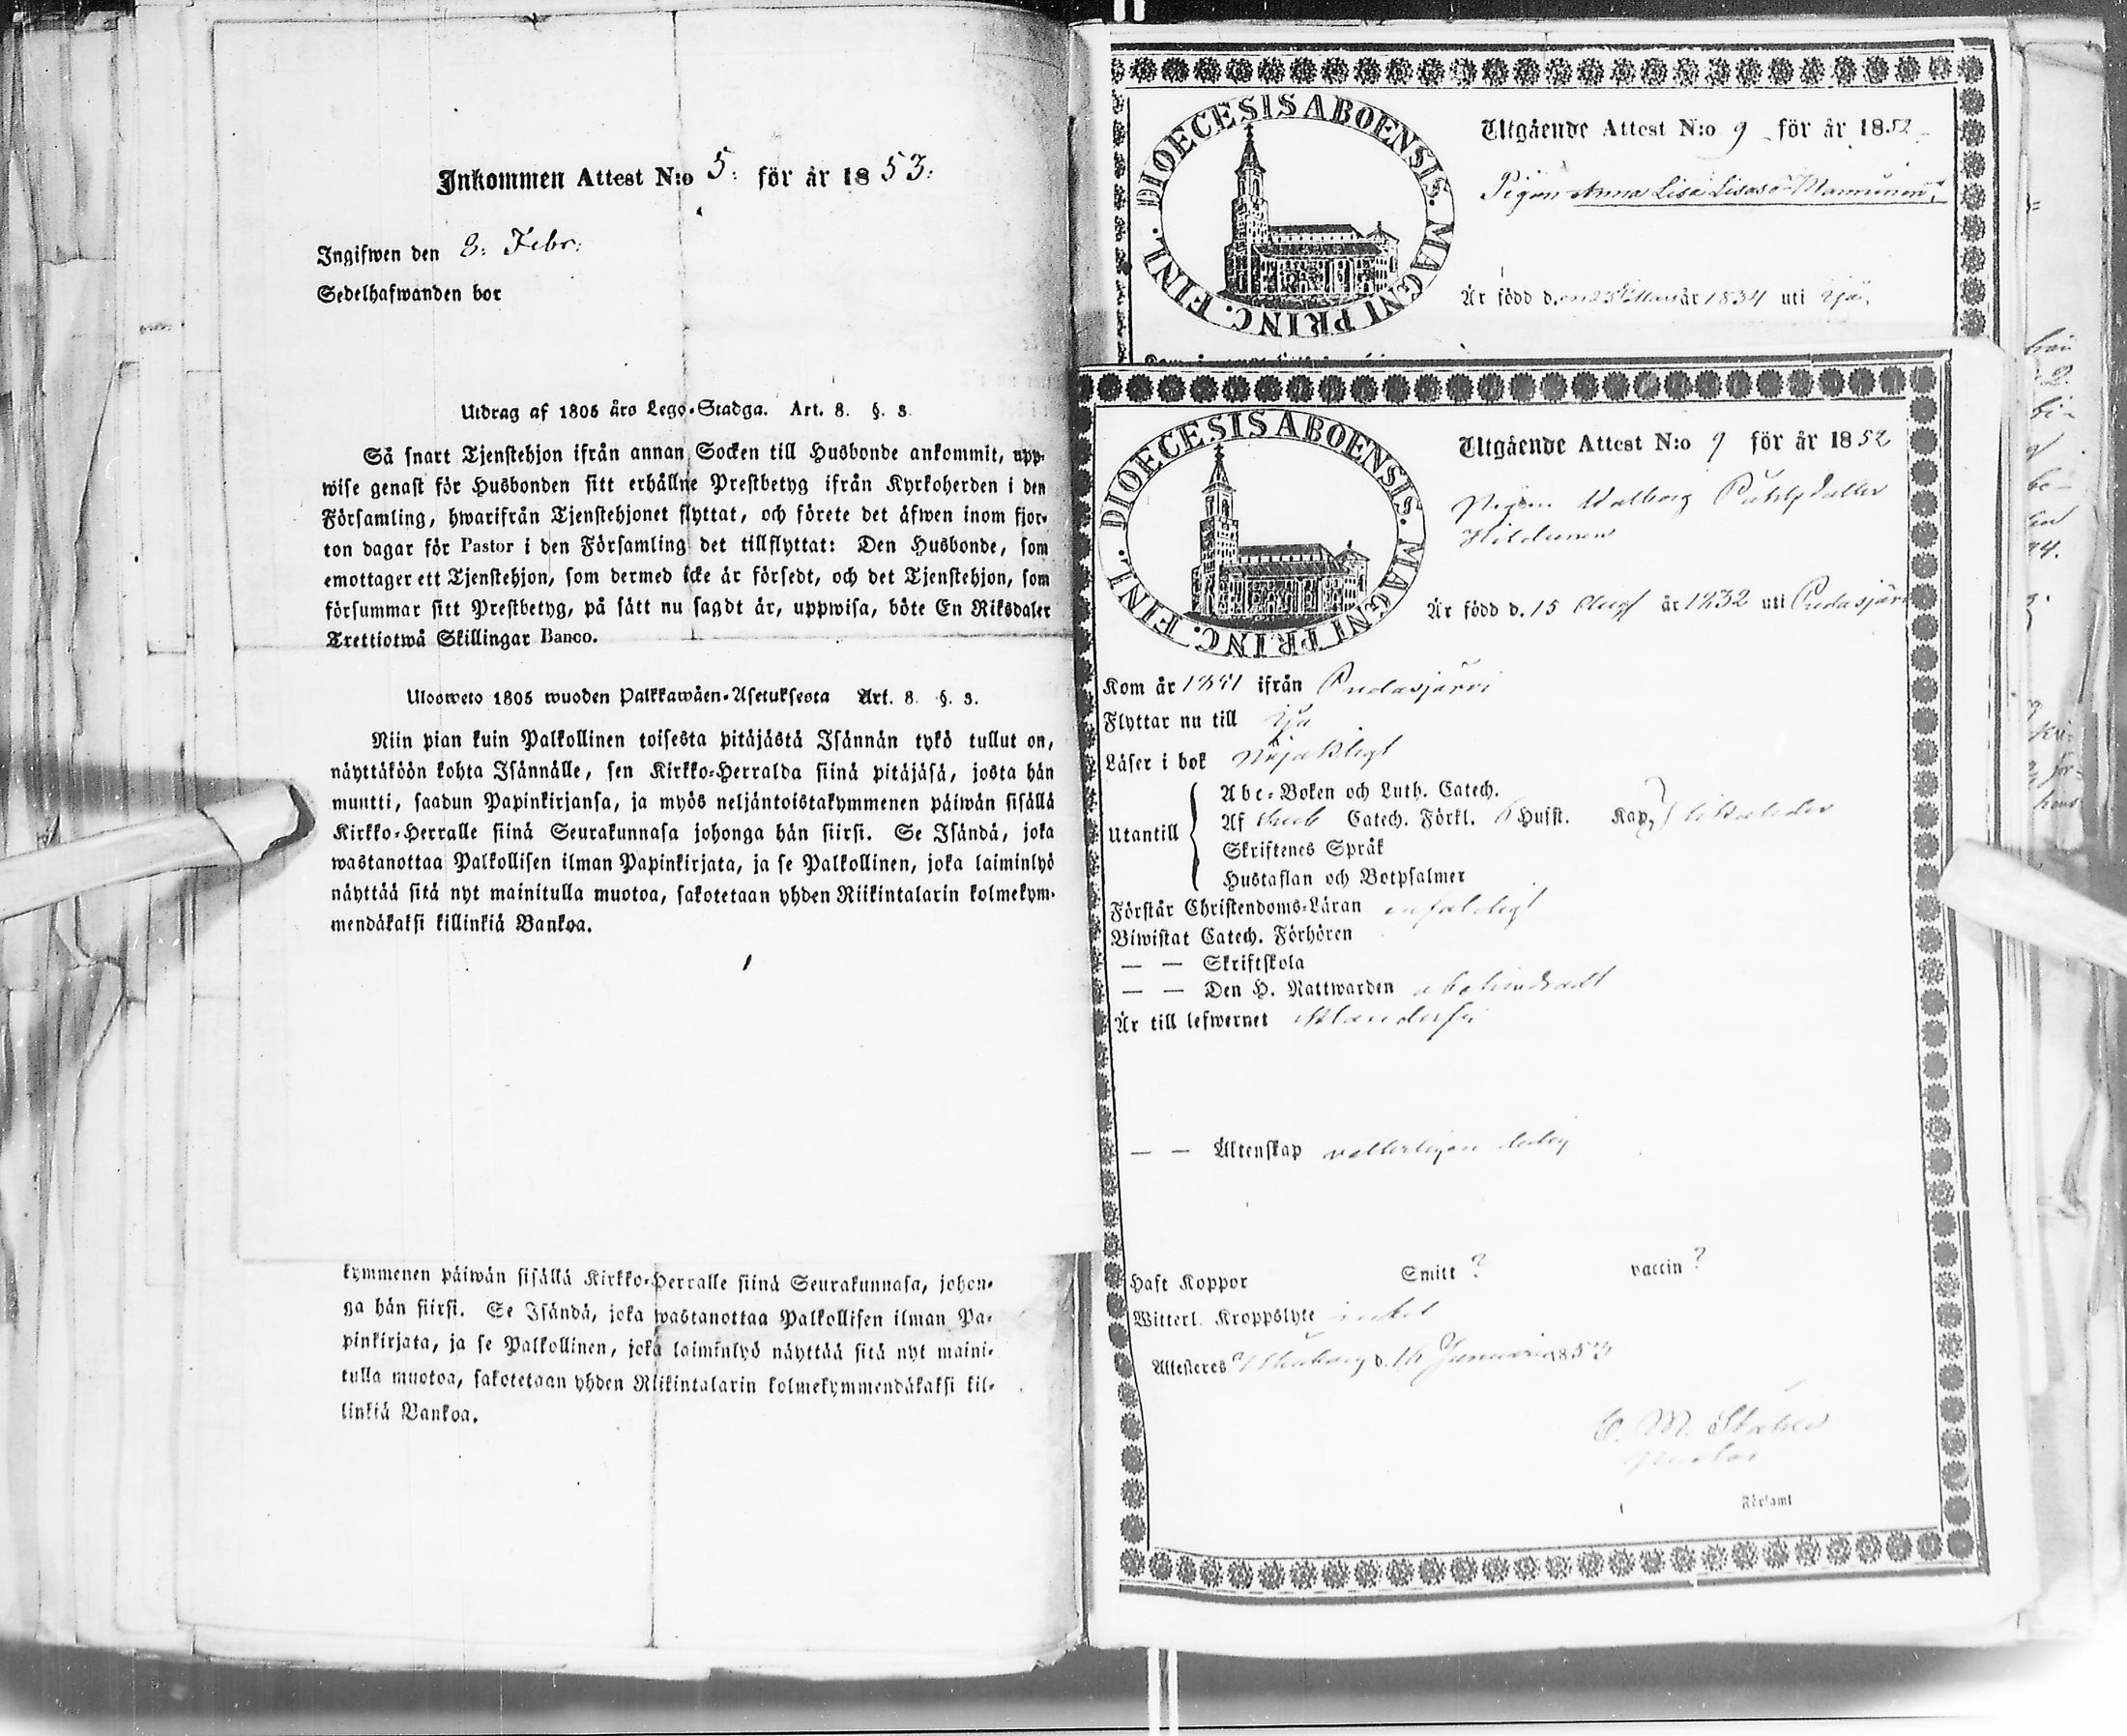 Inkommen Attest N:o 5. för år 1853.
Ingifwen den 8. Febr.
Sedelhafwanden bor
Utdrag af 1805 års Lego-Stadga. Art. 8. §. 3.
Så snart Tjenstehjon ifrån annan Socken till Husbonde ankommit, upp-
wise genast för Husbonden sitt erhållne Prestbetyg ifrån Kyrkoherden i den
Församling, hwarifrån Tjenstehjonet flyttat, och förete det äfwen inom fjor-
ton dagar för Pastor i den Församling det tillflyttat: Den Husbonde, som
emottager ett Tjenstehjon, som dermed icke är försedt, och det Tjenstehjon, som
försummar sitt Prestbetyg, på sätt nu sagdt är, uppwisa, böte En Riksdaler
Trettiotwå Skillingar Banco.
Ulosweto 1805 wuoden Palkkawäen-Asetuksesta Art. 8. §. 3.
Niin pian kuin Palkollinen toisesta pitäjästä Isännän tykö tullut on,
näyttäköön kohta Isännälle, sen Kirkko-Herralda siinä pitäjäsä, josta hän
muutti, saadun Papinkirjansa, ja myös neljäntoistakymmenen päiwän sisällä
Kirkko-Herralle siinä Seurakunnasa johonga hän siirsi. Se Isändä, joka
wastanottaa Palkollisen ilman Papinkirjata, ja se Palkollinen, joka laiminlyö
näyttää sitä nyt mainitulla muotoa, sakotetaan yhden Riikintalarin kolmekym-
mendäkaksi killinkiä Bankoa.
kymmenen päiwän sisällä Kirkko-Herralle siinä Seurakunnasa, johon-
ga hän siirsi. Se Isändä, joka wastanottaa Palkollisen ilman Pa-
pinkirjata, ja se Palkollinen, joka laiminlyö näyttää sitä nyt maini-
tulla muotoa, sakotetaan yhden Riikintalarin kolmekymmendäkaksi kil-
linkiä Bankoa.
DIOECESIS ABOENSIS. MAGNI PRINC. FINL.
Utgående Attest N:o 9 för år 1852
Pigan Anna Lisa
Är född den 25 Mars år 1834 uti Ijo.
DIOECESIS ABOENSIS. MAGNI PRINC. FINL.
Utgående Attest N:o 9 för år 1852
Pigan Walborg
Hildunen
Är född d. 15 Aug år 1832 uti Pudasjärvi
Kom år 1851 ifrån Pudasjärvi
Flyttar nu till Ijo
Läser i bok nöjaktligt
Utantill
Abc-Boken och Luth. Catech.
Af Catech. Förkl. Husst. Kap.
Skriftenes Språk
Hustaflan och Botpsalmer
Förstår Christendoms-Läran enfaldigt
Biwistat Catech. Förhören
— — Skriftskola
— — Den H. Nattwarden obehindradt
Är till lefwernet oklanderlig
— — Äktenskap veterligen ledig
Haft Koppor Smitt ? vaccin ?
Witterl. Kroppslyte intet
Attesteres d. 16 Januari 1853
Pastor
Församl